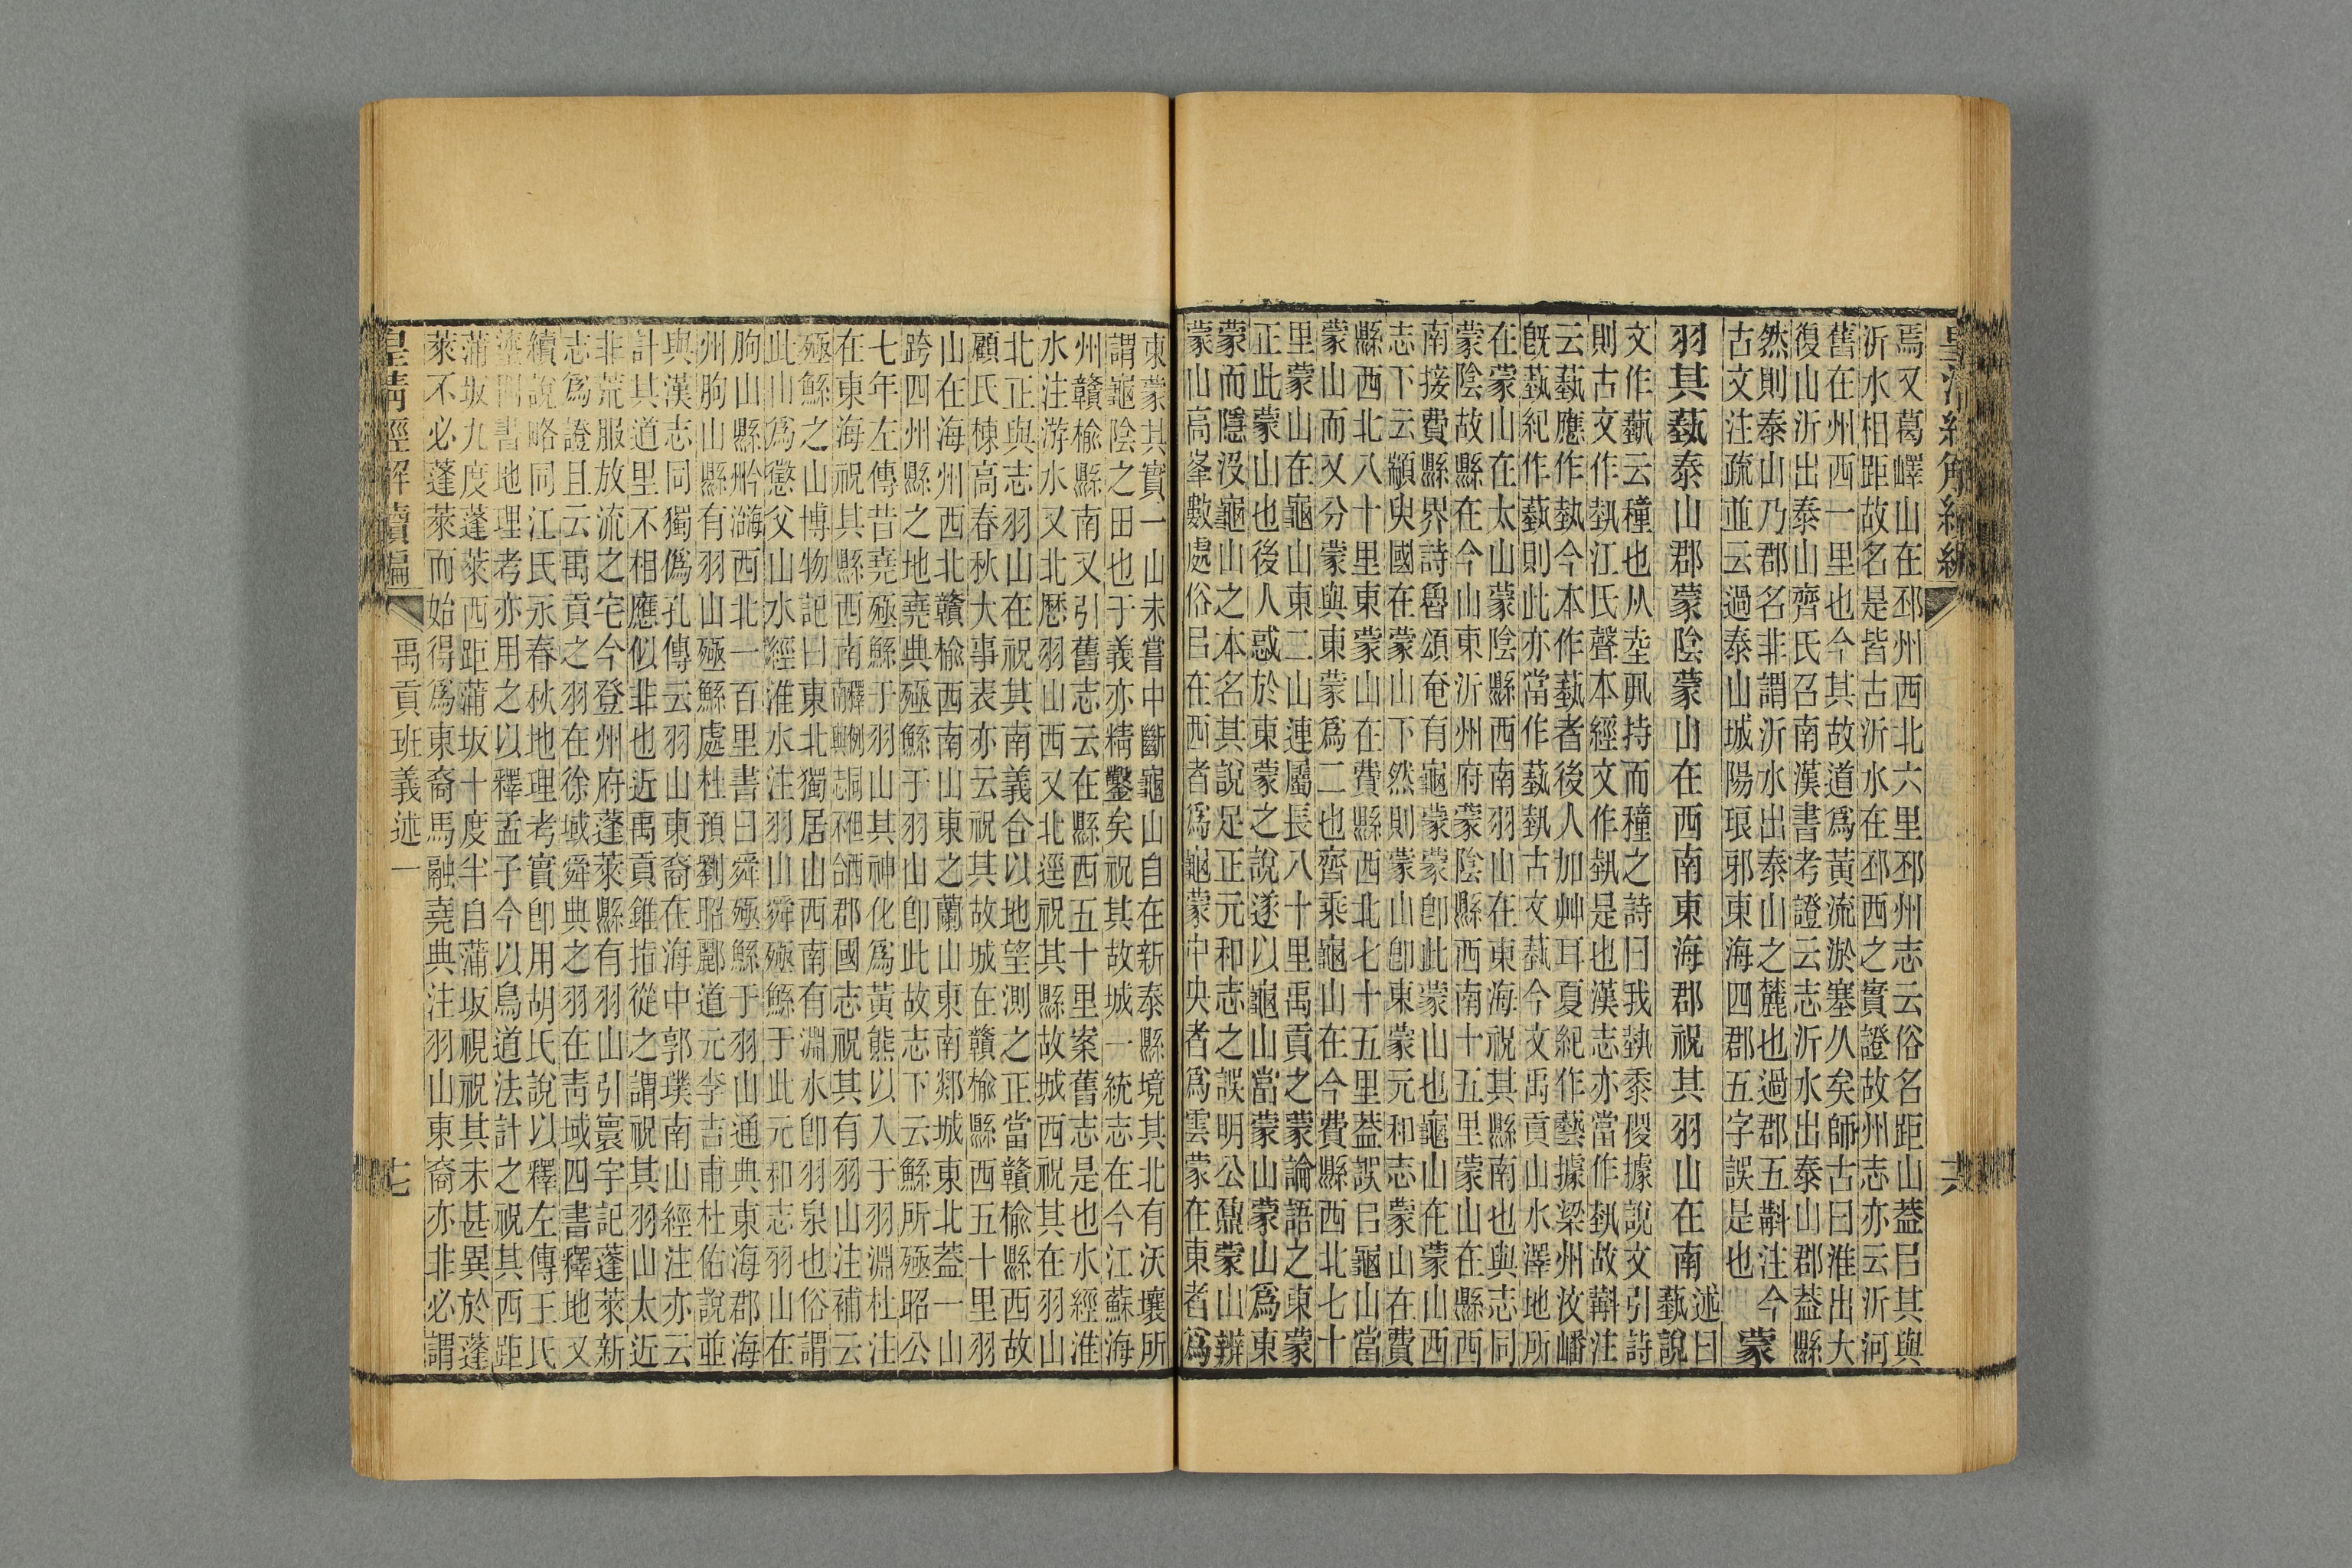 皇清經解續編
六
焉又葛嶧山在邳州西北六里邳州志云俗名距山葢㠯其與
沂水相距故名是皆古沂水在邳西之實證故州志亦云沂河
舊在州西一里也今其故道爲黃流淤塞久矣師古曰淮出大
復山沂出泰山齊氏召南漢書考證云志沂水出泰山郡葢縣
然則泰山乃郡名非謂沂水出泰山之麓也過郡五斠注今
古文注疏並云過泰山城陽琅邪東海四郡五字誤是也 蒙
羽其蓺泰山郡蒙陰蒙山在西南東海郡祝其羽山在南述曰
蓺說
文作蓺云穜也从坴丮持而穜之詩曰我埶黍稷據說文引詩
則古文作埶江氏聲本經文作埶是也漢志亦當作埶故斠注
云蓺應作埶今本作蓺者後人加艸耳夏紀作藝據梁州汶嶓
旣蓺紀作蓺則此亦當作蓺埶古文蓺今文禹貢山水澤地所
在蒙山在太山蒙陰縣西南羽山在東海祝其縣南也與志同
蒙陰故縣在今山東沂州府蒙陰縣西南十五里蒙山在縣西
南接費縣界詩魯頌奄有龜蒙蒙卽此蒙山也龜山在蒙山西
志下云顓臾國在蒙山下然則蒙山卽東蒙元和志蒙山在費
縣西北八十里東蒙山在費縣西北七十五里葢誤㠯龜山當
蒙山而又分蒙與東蒙爲二也齊乘龜山在今費縣西北七十
里蒙山在龜山東二山連屬長八十里禹貢之蒙論語之東蒙
正此蒙山也後人惑於東蒙之說遂以龜山當蒙山蒙山爲東
蒙而隱沒龜山之本名其說足正元和志之誤明公鼐蒙山辨
蒙山高峯數處俗㠯在西者爲龜蒙中央者爲雲蒙在東者爲
東蒙其實一山未嘗中斷龜山自在新泰縣境其北有沃壤所
謂龜陰之田也于義亦精鑿矣祝其故城一統志在今江蘇海
州贛榆縣南又引舊志云在縣西五十里案舊志是也水經淮
水注游水又北歷羽山西又北逕祝其縣故城西祝其在羽山
北正與志羽山在祝其南義合以地望測之正當贛榆縣西故
顧氏棟高春秋大事表亦云祝其故城在贛榆縣西五十里羽
山在海州西北贛榆西南山東之蘭山東南郯城東北葢一山
跨四州縣之地堯典殛鯀于羽山卽此故志下云鯀所殛昭公
七年左傳昔堯殛鯀于羽山其神化爲黃熊以入于羽淵杜注
在東海祝其縣西南郡國志祝其有羽山注補云
殛鯀之山博物記曰東北獨居山西南有淵水卽羽泉也俗謂
此山爲懲父山水經淮水注羽山舜殛鯀于此元和志羽山在
朐山縣西北一百里書曰舜殛鯀于羽山通典東海郡海
州朐山縣有羽山殛鯀處杜預劉昭酈道元李吉甫杜佑說並
與漢志同獨僞孔傳云羽山東裔在海中郭璞南山經注亦云
計其道里不相應似非也近禹貢錐指從之謂祝其羽山太近
非荒服放流之宅今登州府蓬萊縣有羽山引寰宇記蓬萊新
志爲證且云禹貢之羽在徐域舜典之羽在靑域四書釋地又
續說略同江氏永春秋地理考實卽用胡氏說以釋左傳王氏
四書地理考亦用之以釋孟子今以鳥道法計之祝其西距
蒲坂九度蓬萊西距蒲坂十度半自蒲坂視祝其未甚異於蓬
萊不必蓬萊而始得爲東裔馬融堯典注羽山東裔亦非必謂
皇清經解續編
禹貢班義述一
七